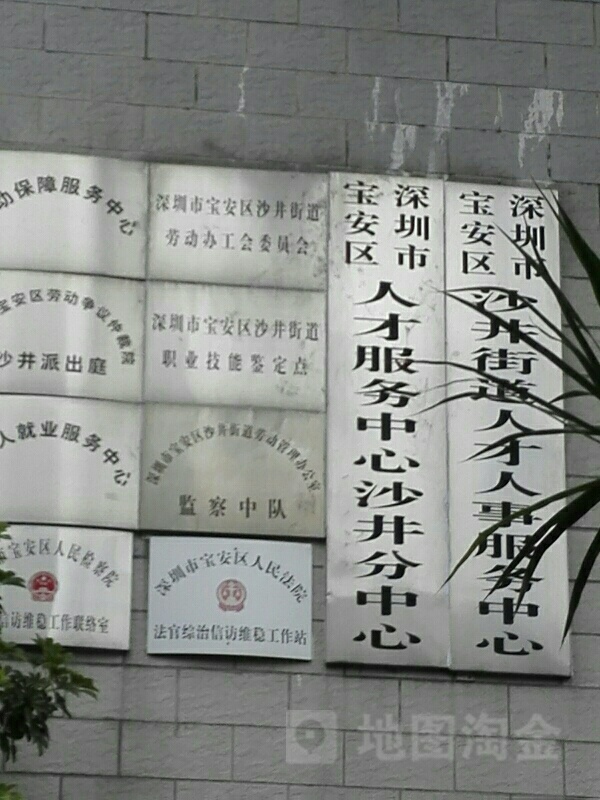 动保障服务中心
深圳市宝安区沙井街道
劳动办工会委员会
宝安区劳动争议仲裁院
沙井派出庭
深圳市宝安区沙井街道
职业技能鉴定点
人就业服务中心
深圳市宝安区沙井街道劳动管理办公室
监察中队
市宝安区人民检察院
信访维稳工作联络室
深圳市宝安区人民法院
法官综治信访维稳工作站
深圳市
宝安区
人才服务中心沙井分中心
深圳市
宝安区
沙井街道人才人事服务中心
地图淘金